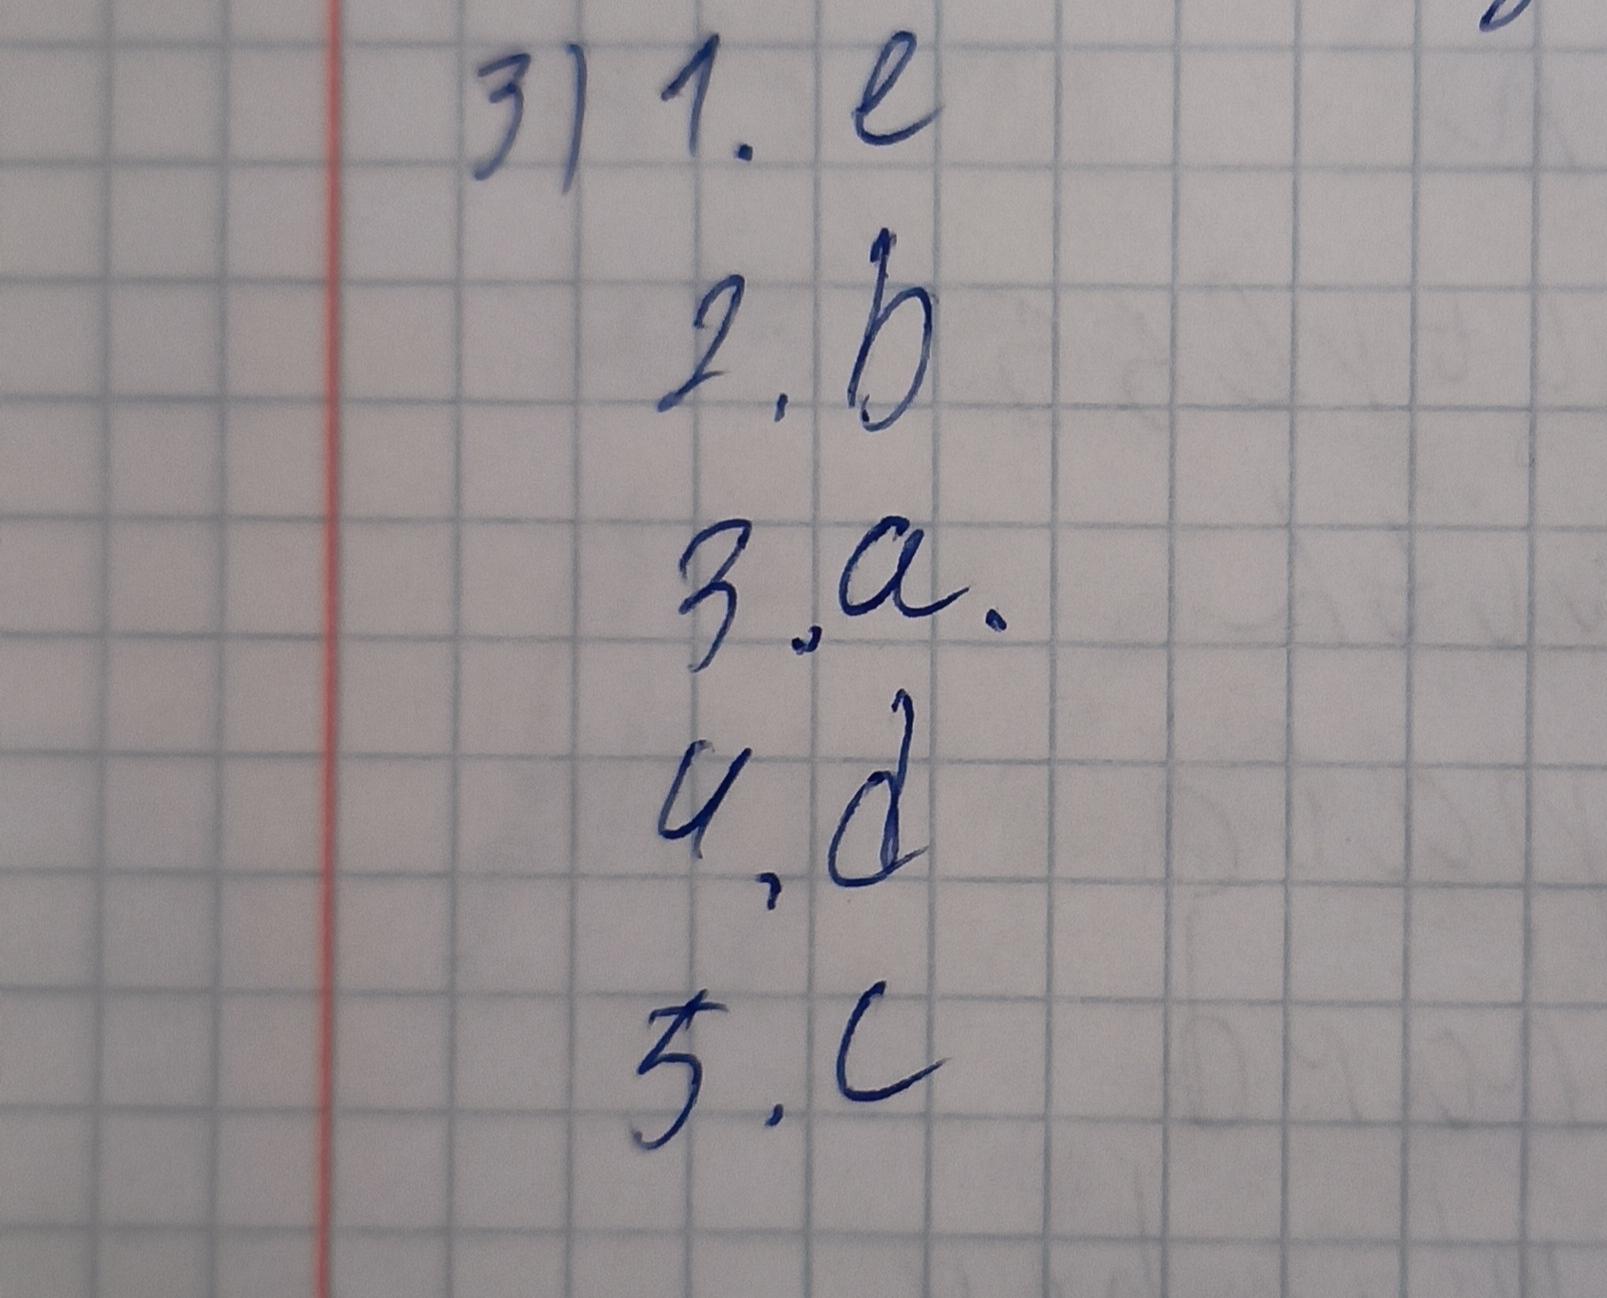 3) 1. e
2. b
3. a.
4. d
5. c